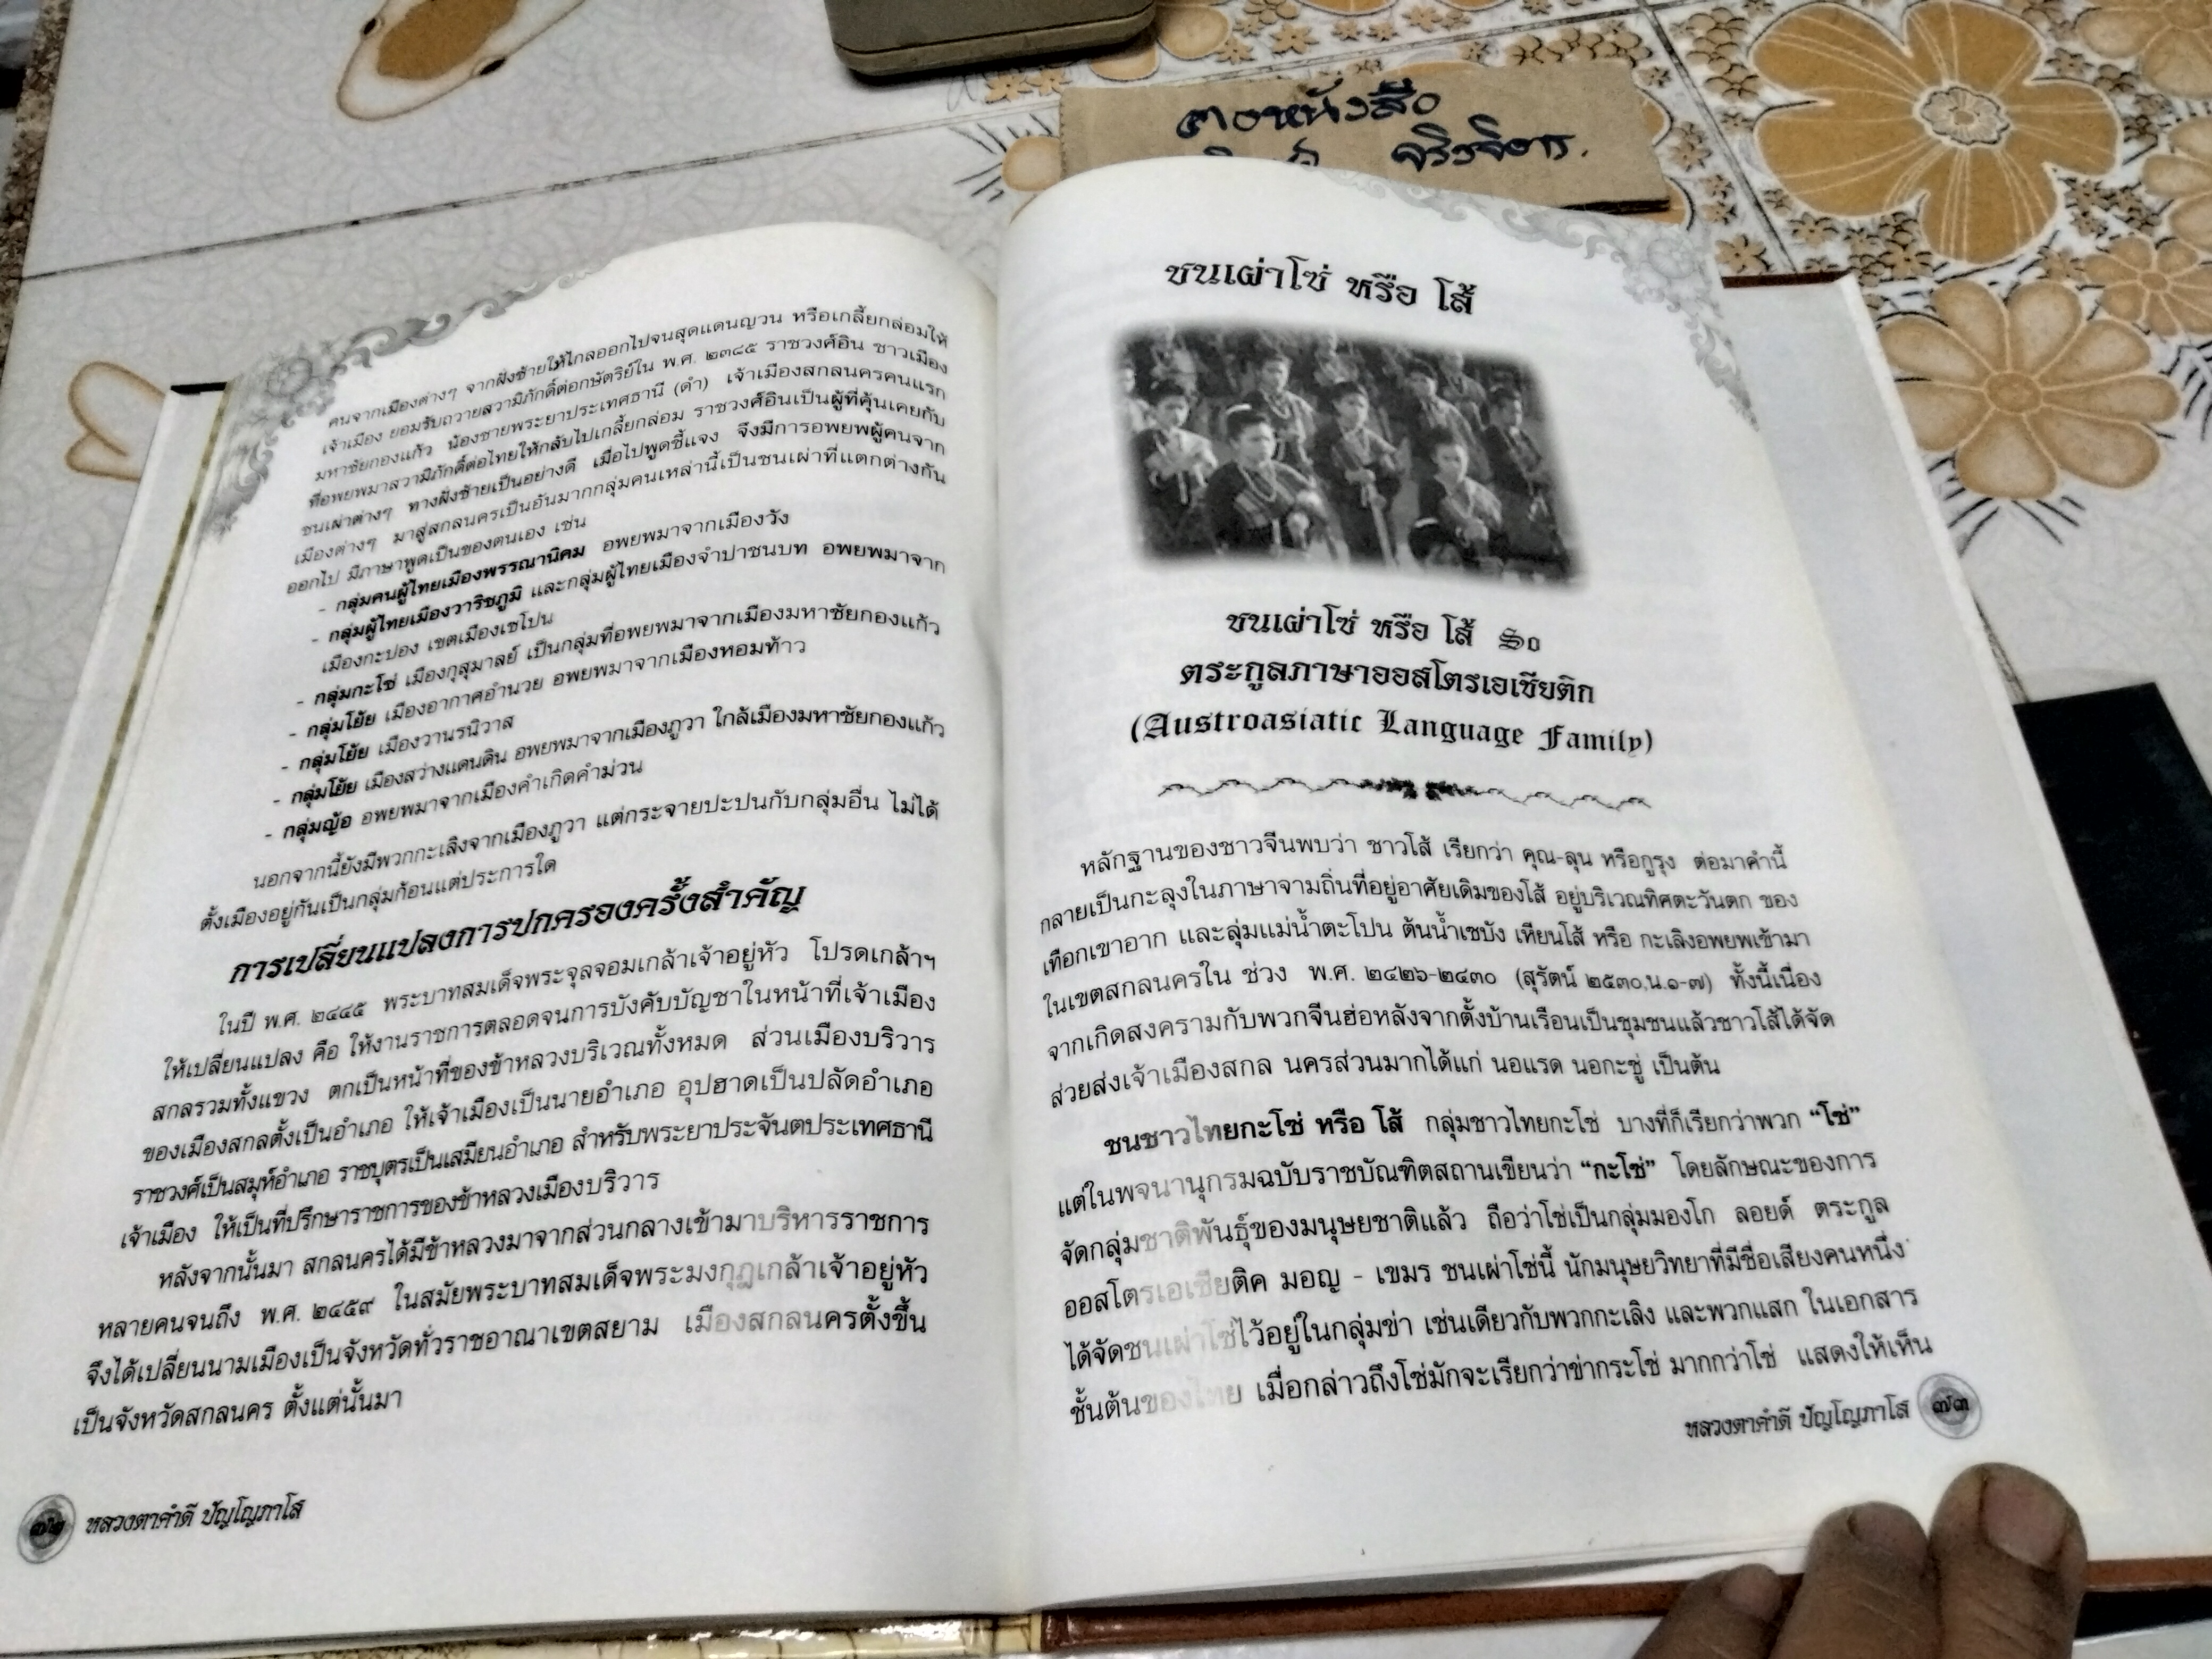 ขอหนังสือ
จริงจิตร.
คนจากเมืองต่างๆ จากฝั่งซ้ายให้ไกลออกไปจนสุดแดนญวน หรือเกลี้ยกล่อมให้
เจ้าเมือง ยอมรับถวายสวามิภักดิ์ต่อกษัตริย์ใน พ.ศ. ๒๓๘๕ ราชวงศ์อิน ชาวเมือง
มหาชัยกองแก้ว น้องชายพระยาประเทศธานี (ดำ) เจ้าเมืองสกลนครคนแรก
ที่อพยพมาสวามิภักดิ์ต่อไทยให้กลับไปเกลี้ยกล่อม ราชวงศ์อินเป็นผู้ที่คุ้นเคยกับ
ชนเผ่าต่างๆ ทางฝั่งซ้ายเป็นอย่างดี เมื่อไปพูดชี้แจง จึงมีการอพยพผู้คนจาก
เมืองต่างๆ มาสู่สกลนครเป็นอันมากกลุ่มคนเหล่านี้เป็นชนเผ่าที่แตกต่างกัน
ออกไป มีภาษาพูดเป็นของตนเอง เช่น
- กลุ่มคนผู้ไทยเมืองพรรณานิคม อพยพมาจากเมืองวัง
- กลุ่มผู้ไทยเมืองวาริชภูมิ และกลุ่มผู้ไทยเมืองจำปาชนบท อพยพมาจาก
เมืองกะปอง เขตเมืองเซโปน
- กลุ่มกะโซ่ เมืองกุสุมาลย์ เป็นกลุ่มที่อพยพมาจากเมืองมหาชัยกองแก้ว
- กลุ่มโย้ย เมืองอากาศอำนวย อพยพมาจากเมืองหอมท้าว
- กลุ่มโย้ย เมืองวานรนิวาส
- กลุ่มโย้ย เมืองสว่างแดนดิน อพยพมาจากเมืองภูวา ใกล้เมืองมหาชัยกองแก้ว
- กลุ่มญ้อ อพยพมาจากเมืองคำเกิดคำม่วน
นอกจากนี้ยังมีพวกกะเลิงจากเมืองภูวา แต่กระจายปะปนกับกลุ่มอื่น ไม่ได้
ตั้งเมืองอยู่กันเป็นกลุ่มก้อนแต่ประการใด
การเปลี่ยนแปลงการปกครองครั้งสำคัญ
ในปี พ.ศ. ๒๔๔๕ พระบาทสมเด็จพระจุลจอมเกล้าเจ้าอยู่หัว โปรดเกล้าฯ
ให้เปลี่ยนแปลง คือ ให้งานราชการตลอดจนการบังคับบัญชาในหน้าที่เจ้าเมือง
สกลรวมทั้งแขวง ตกเป็นหน้าที่ของข้าหลวงบริเวณทั้งหมด ส่วนเมืองบริวาร
ของเมืองสกลตั้งเป็นอำเภอ ให้เจ้าเมืองเป็นนายอำเภอ อุปฮาดเป็นปลัดอำเภอ
ราชวงศ์เป็นสมุห์อำเภอ ราชบุตรเป็นเสมียนอำเภอ สำหรับพระยาประจันตประเทศธานี
เจ้าเมือง ให้เป็นที่ปรึกษาราชการของข้าหลวงเมืองบริวาร
หลังจากนั้นมา สกลนครได้มีข้าหลวงมาจากส่วนกลางเข้ามาบริหารราชการ
หลายคนจนถึง พ.ศ. ๒๔๕๙ ในสมัยพระบาทสมเด็จพระมงกุฎเกล้าเจ้าอยู่หัว
จึงได้เปลี่ยนนามเมืองเป็นจังหวัดทั่วราชอาณาเขตสยาม เมืองสกลนครตั้งขึ้น
เป็นจังหวัดสกลนคร ตั้งแต่นั้นมา
๗๒ หลวงตาคำดี ปัญโญภาโส
ชนเผ่าโซ่ หรือ โส้
ชนเผ่าโซ่ หรือ โส้ So
ตระกูลภาษาออสโตรเอเชียติก
(Austroasiatic Language Family)
หลักฐานของชาวจีนพบว่า ชาวโส้ เรียกว่า คุณ-ลุน หรือกูรุง ต่อมาคำนี้
กลายเป็นกะลุงในภาษาจามถิ่นที่อยู่อาศัยเดิมของโส้ อยู่บริเวณทิศตะวันตก ของ
เทือกเขาอาก และลุ่มแม่น้ำตะโปน ต้นน้ำเซบัง เหียนโส้ หรือ กะเลิงอพยพเข้ามา
ในเขตสกลนครใน ช่วง พ.ศ. ๒๔๒๖-๒๔๓๐ (สุรัตน์ ๒๕๓๐,น.๑-๗) ทั้งนี้เนื่อง
จากเกิดสงครามกับพวกจีนฮ่อหลังจากตั้งบ้านเรือนเป็นชุมชนแล้วชาวโส้ได้จัด
ส่วยส่งเจ้าเมืองสกล นครส่วนมากได้แก่ นอแรด นอกะซู่ เป็นต้น
ชนชาวไทยกะโซ่ หรือ โส้ กลุ่มชาวไทยกะโซ่ บางที่ก็เรียกว่าพวก “โซ่”
แต่ในพจนานุกรมฉบับราชบัณฑิตสถานเขียนว่า “กะโซ่” โดยลักษณะของการ
จัดกลุ่มชาติพันธุ์ของมนุษยชาติแล้ว ถือว่าโซ่เป็นกลุ่มมองโก ลอยด์ ตระกูล
ออสโตรเอเซียติค มอญ - เขมร ชนเผ่าโซ่นี้ นักมนุษยวิทยาที่มีชื่อเสียงคนหนึ่ง
ได้จัดชนเผ่าโซ่ไว้อยู่ในกลุ่มข่า เช่นเดียวกับพวกกะเลิง และพวกแสก ในเอกสาร
ชั้นต้นของไทย เมื่อกล่าวถึงโซ่มักจะเรียกว่าข่ากระโซ่ มากกว่าโซ่ แสดงให้เห็น
หลวงตาคำดี ปัญโญภาโส ๗๓